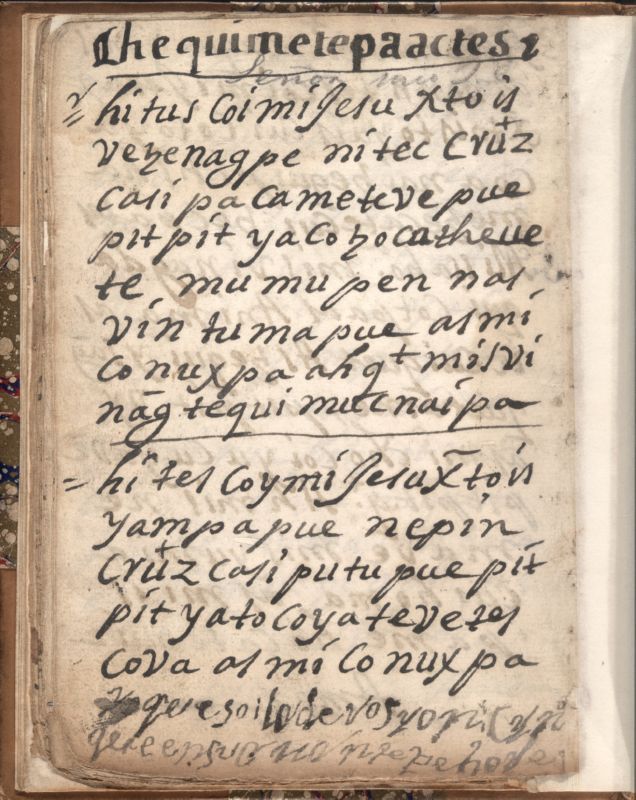 Chequimetepaactes
Señor mio
hitus Coi mi Jesu Xto is
veꜩenagpe nitec Cruz
Casi pa Cameteve pue
pit pit ya Coꜩocatheue
te mu mu pen nas
vin tuma pue as mi
Conuxpa ahqt misvi
nāg tequi muc nai pa
hi tes Coy mi Jesu Xto is
yampa pue nepin
Cruz Casi putu pue pit
pit yato Coya te veꜩes
Cova as mi Conux pa